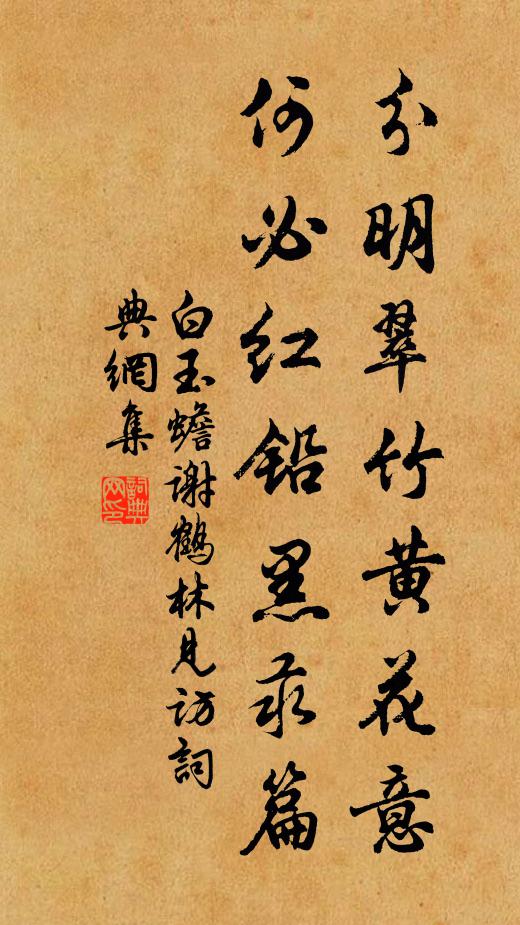 分明翠竹黄花意
何必红铅黑汞篇
白玉蟾谢鹤林见访詞
典網集
詞典
网印